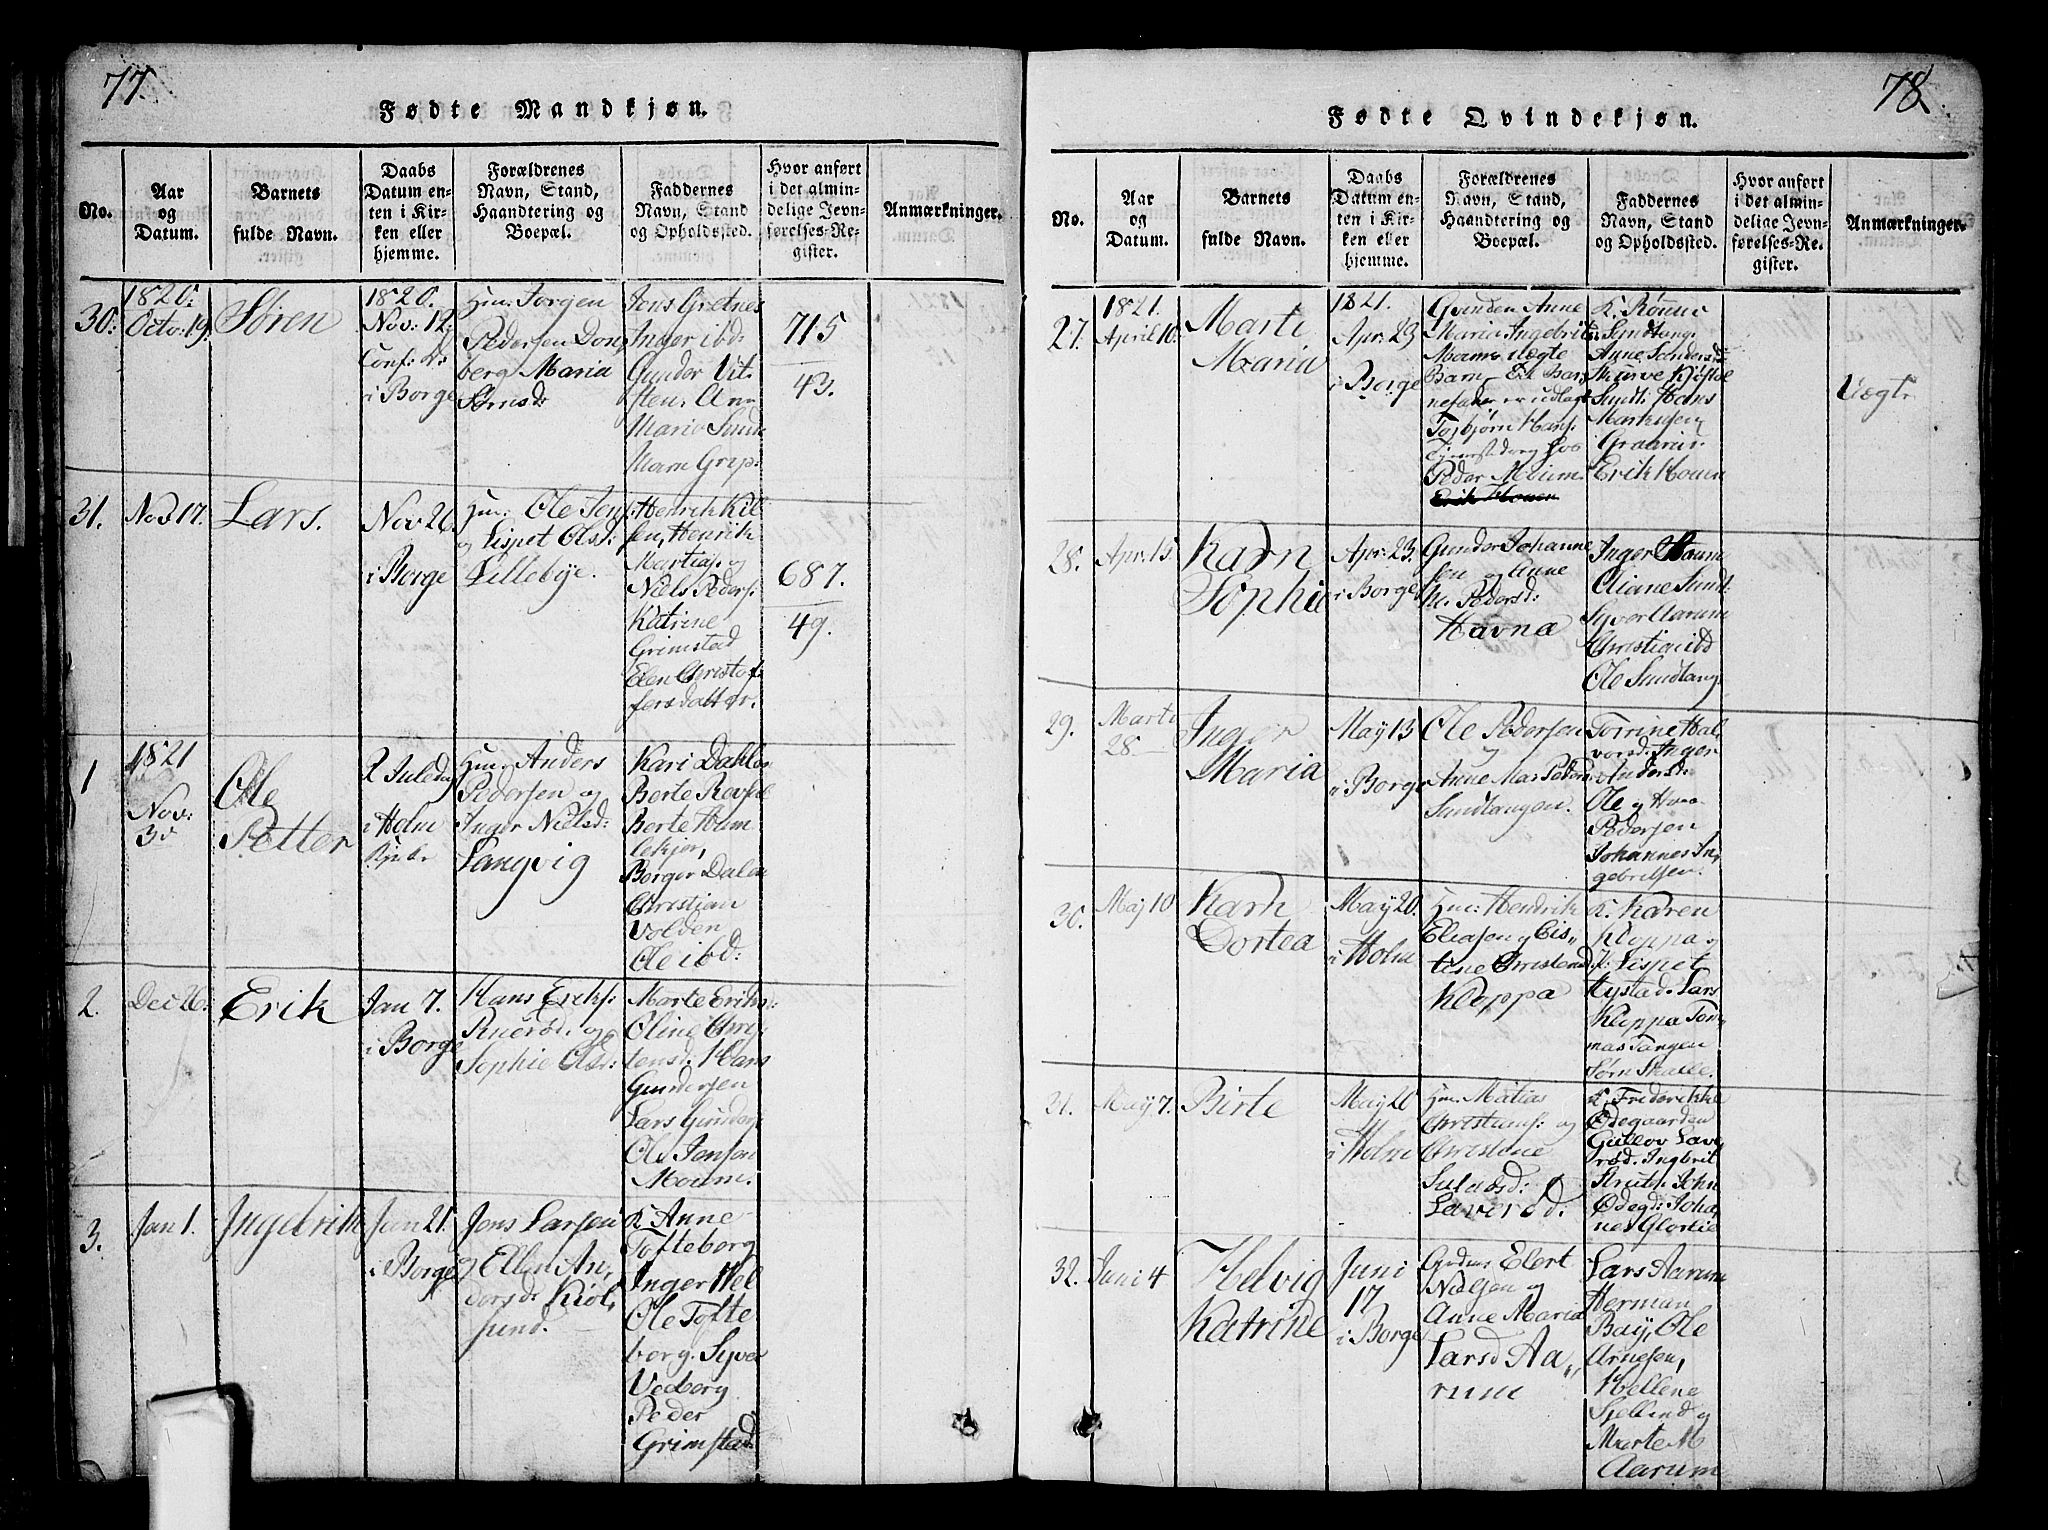 77.
Fødte Mandkjøn.
No.
Aar
og
Datum.
Barnets
fulde Navn.
Daabs
Datum en-
ten i Kir-
ken eller
hjemme.
Forældrenes
Navn, Stand,
Haandtering og
Boepæl.
Faddernes
Navn, Stand
og Opholdssted.
Hvor anført
i det almin-
delige Jevn-
førelses-Re-
gister.
Anmærkninger.
30:
1820:
Octo: 19.
Søren
1820.
Nov: 12.
Conf: K:
i Borge
Hm: Jorgen
Pedersen
berg Maria
Jens Gretnes
Inger ibd:
Gunder Vit-
sten, Ann
Maria Sund
Maren Grip:
715
43.
31.
Nov 17.
Lars.
Nov 26
i Borge
Hm: Ole Jens:
og Lispet Olsd:
Lillebye.
Henrik Kil
sen, Henrik
og
Niels Peders:
Katrine
Grimstad
Elen Christof-
fersdatter.
687.
49.
1
1821
Nov:
30
Ole
Petter
2 Juledag
i Holm
Hm: Anders
Pedersen og
Inger Nielsd:
Langvig
Kari Dahler
Berte
Berte Hum
lekjer,
Borger Dalen
Christian
Volden
Ole ibd:
2.
Dec 26.
Erik
Jan 7.
i Borge
Hans Eriks:
Ruerød. og
Sophie Olsd:
Marte Eriks:
Oline Chris
tensd. Hans
Gundersen
Lars Gunders
Ole Jensen
Moum.
3.
Jan 1.
Ingebrik
Jan 21.
i Borge
Jens Larsen
og Ellen An-
dersd: Kiøl-
sund.
K: Anne
Tofteberg
Inger Hel
Ole Tofte
berg. Syver
Vedberg
Peder
Grimstad
78.
Fødte Qvindekjøn.
No.
Aar
og
Datum.
Barnets
fulde Navn.
Daabs
Datum en-
ten i Kir-
ken eller
hjemme.
Forældrenes
Navn, Stand,
Haandtering og
Boepæl.
Faddernes
Navn, Stand
og Opholdssted.
Hvor anført
i det almin-
delige Jevn-
førelses-Re-
gister.
Anmærkninger.
27.
1821.
April 10.
Marte
Maria
1821.
Apr: 23
i Borge
Anne
Maria Ingebrits
Moum uægte
Barn - Til Bar-
nefader er udlagt
Torbjørn Hans:
hos
Peder Moum
Erik Houen
K: Rønnie
Sundlange
Anne Sanders:
Hans
Markusen
Graarus:
Erik Houen
Uægte
28.
Apr: 15
Karn
Sophie
Apr: 23.
i Borge
Gunder Johanne
sen og Anne
M: Pedersd:
Havna
Inger Houm
Eliane Sundt:
Syver Aarum
Christian ibd
Ole Sundlang
29.
Marti
28
Inger
Maria
May 13
i Borge
Ole Pedersen
Anne Mar Peders
Sundlangen.
Torrine Hal
vorsd: Inger
Andersd:
Ole og Hans
Pedersen
Johannes In-
gebritsen.
30.
Maj 10
Karn
Dortea
May 20.
i Holm
Hm: Hendrik
Eliasen og Cis-
tine Christensd
Kloppa
K: Karen
Kloppa og
K: Lispet
Hystad. Lars
Kloppa Tom-
mas Tangen
Sørn Skalle.
31.
May 7.
Birte
May 20
i Holm
Hm: Matias
Christians: og
Christene
Laverød.
K: Friderikke
Ødegaarden
Gullov Lave
rød. Ingbril
Struts. John
Ødegd: Joha
nes Glosлie
32.
Juni 4
Helvig
Katrine
Juni
17
i Borge
Elert
Nielsen og
Anne Maria
Larsd Aa-
rum
Lars Aarum
Herman
Bay, Ole
Arnesen,
Hellene
Sjellind og
Marte M
Aarum